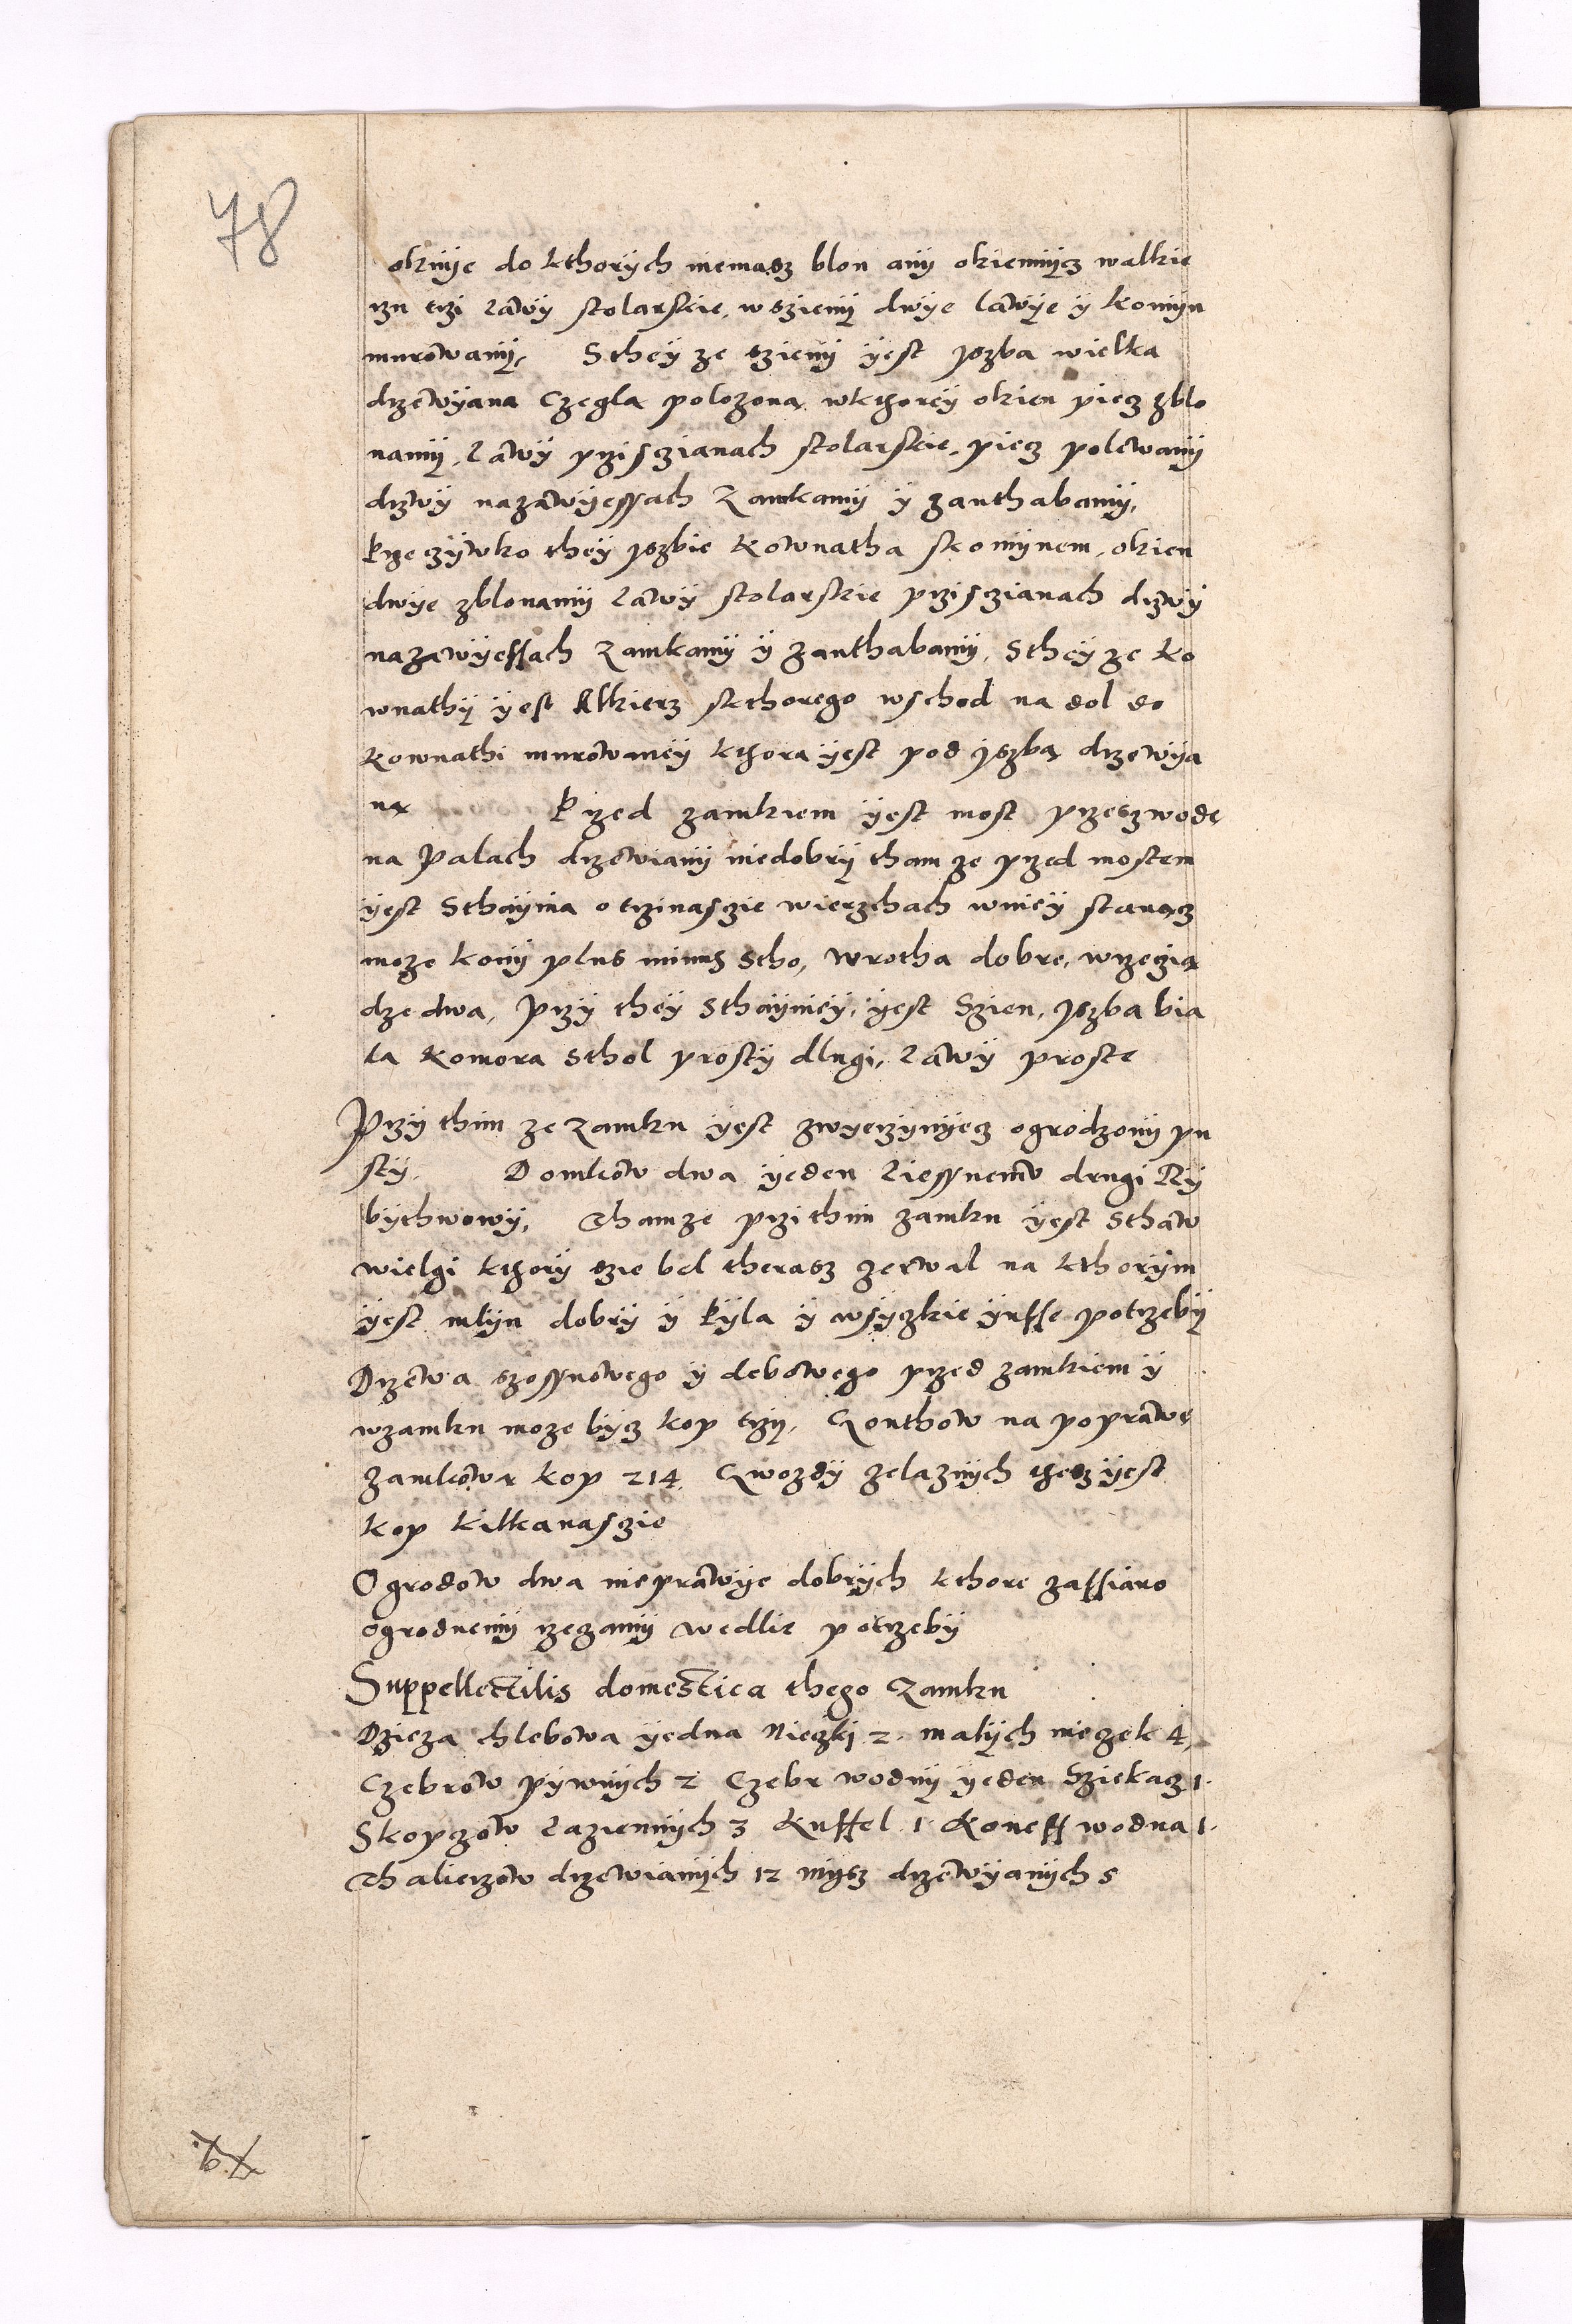 78
oknÿe do kthorÿch niemasz blon anÿ okiennÿcz walkie
rzu trzi lawÿ stolarskie, wszienÿ dwÿe lawÿe ÿ komÿn
murowanÿ, Stheÿ ze szienÿ ÿest Jszba wielka
drzewÿana Czegla polozona wkthoreÿ okien piecz zblo
namÿ, lawÿ przisczianach stolarskie, piecz polewanÿ
drzwÿ nazawÿessach Zamkamÿ ÿ zanthabamÿ,
Przeczÿwko theÿ Jszbie Kownatha skomÿnem, okien
dwÿe zblonamÿ lawÿ stolarskie przisczianach drzwÿ
nazawÿessach Zamkamÿ ÿ zanthabamÿ, Stheÿ ze ko
wnathÿ ÿest Alkierz skthorego wschod na dol do
kownathi murowaneÿ kthora ÿest pod Jszba drzewÿa
na Przed zamkiem ÿest most przeszwode
na Palach drzewianÿ niedobrÿ tham ze przed mostem
ÿest Sthaÿnia o trzinasczie wierzchach wnieÿ stanacz
moze konÿ plus minus stho, wrotha dobre, wrzeczia
dze dwa, Przÿ theÿ Sthaÿnieÿ, ÿest Szien, Jszba bia
la Komora Sthol prostÿ dlugi, lawÿ proste
Przÿ thim ze Zamku ÿest zwÿerzÿnÿecz ogrodzonÿ pu
stÿ. Domkow dwa ÿeden liessnemu drugi Rÿ
bythwowÿ, Thamze przi thim zamku ÿest Sthaw
wielgi kthorÿ szie bel therasz zerwal na kthorÿm
ÿest mlÿn dobrÿ ÿ Pÿla ÿ wsÿczkie ÿnsse potrzebÿ
Drzewa szossnowego ÿ debowego przed zamkiem ÿ
wzamku moze bÿcz kop trzÿ. Gonthow na poprawe
zamkowa kop 214 Gwozdÿ zelaznÿch thesz ÿest
kop kilkanasczie
Ogrodow dwa nieprawÿe dobrÿch kthore zassiano
ogrodnemi rzeczamÿ wedlie potrzebÿ
Suppellectilis domestica thego Zamku
Dzieza chlebowa ÿedna Nieczki 2. malÿch nieczek 4,
Czebrow pÿwnÿch 2 Czebr wodnÿ ÿeden Sziekacz 1.
Skopczow laziennÿch 3 Kuffel 1. Koneff wodna 1.
Thalierzow drzewianÿch 12 mÿsz drzewÿanÿch 5